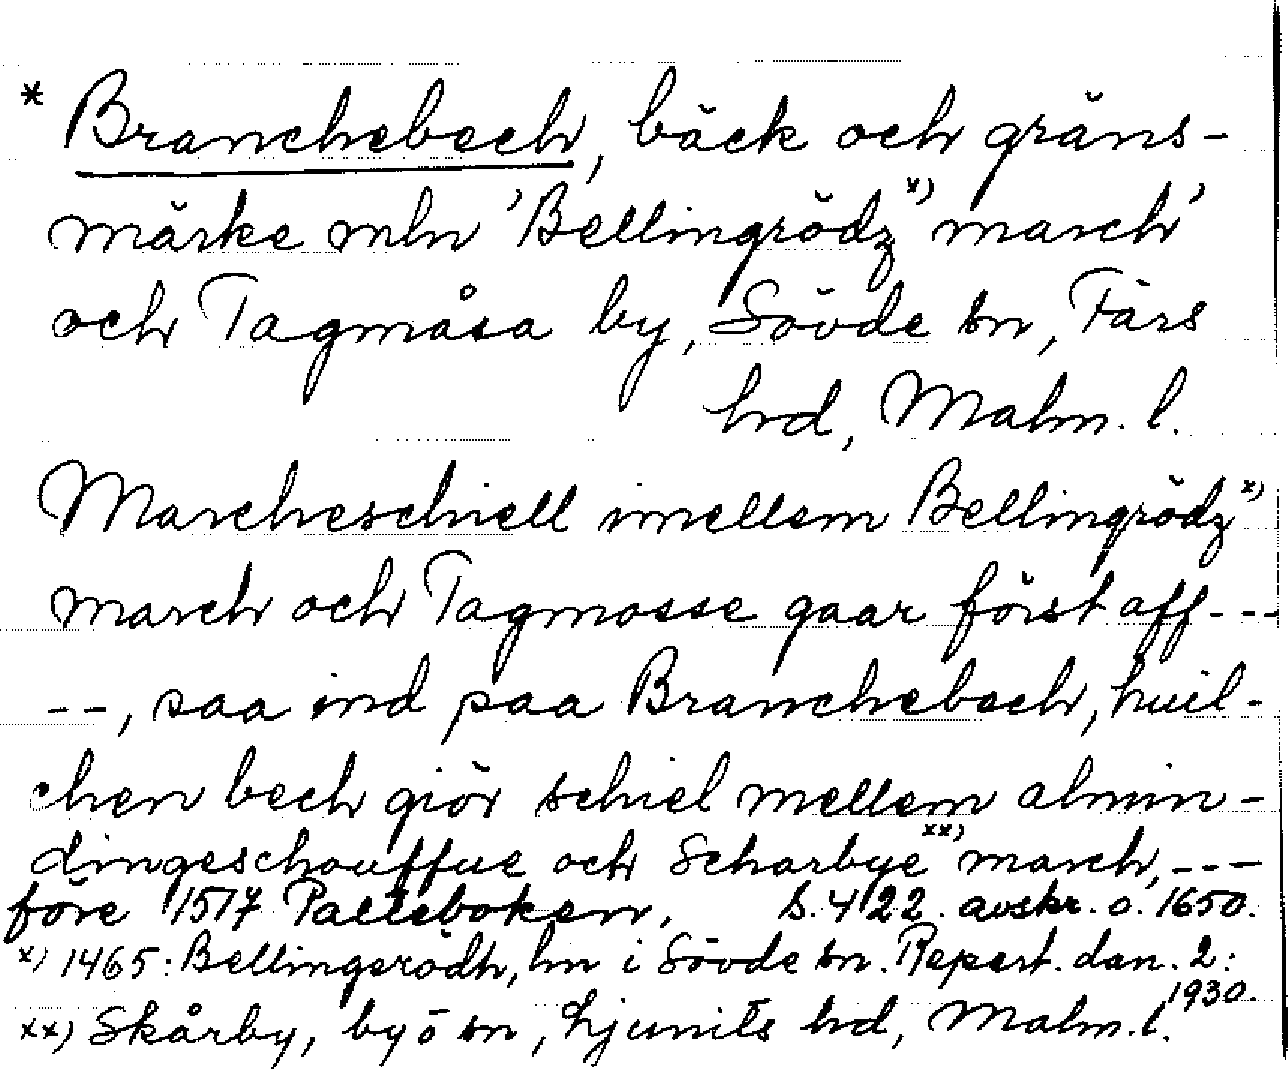 * Branchebech, bäck och gräns-
märke mln 'Bellingrödz x) march'
och Tagmåsa by, Sövde sn, Färs
hrd, Malm. l.
Marcheschiell imellem Bellingrödz x)
march och Tagmosse gaar först aff - - -
- -, saa ind paa Branchebech, huil-
chen bech giör schiel mellem almin-
dingeschouffue och Scharbye xx) march, - - -
före 1517 Palteboken, s. 422. avskr. o. 1650.
x) 1465: Bellingerödh, hn i Sövde sn. Repert. dan. 2:
1930.
xx) Skårby, by o sn, Ljunits hrd, Malm. l.